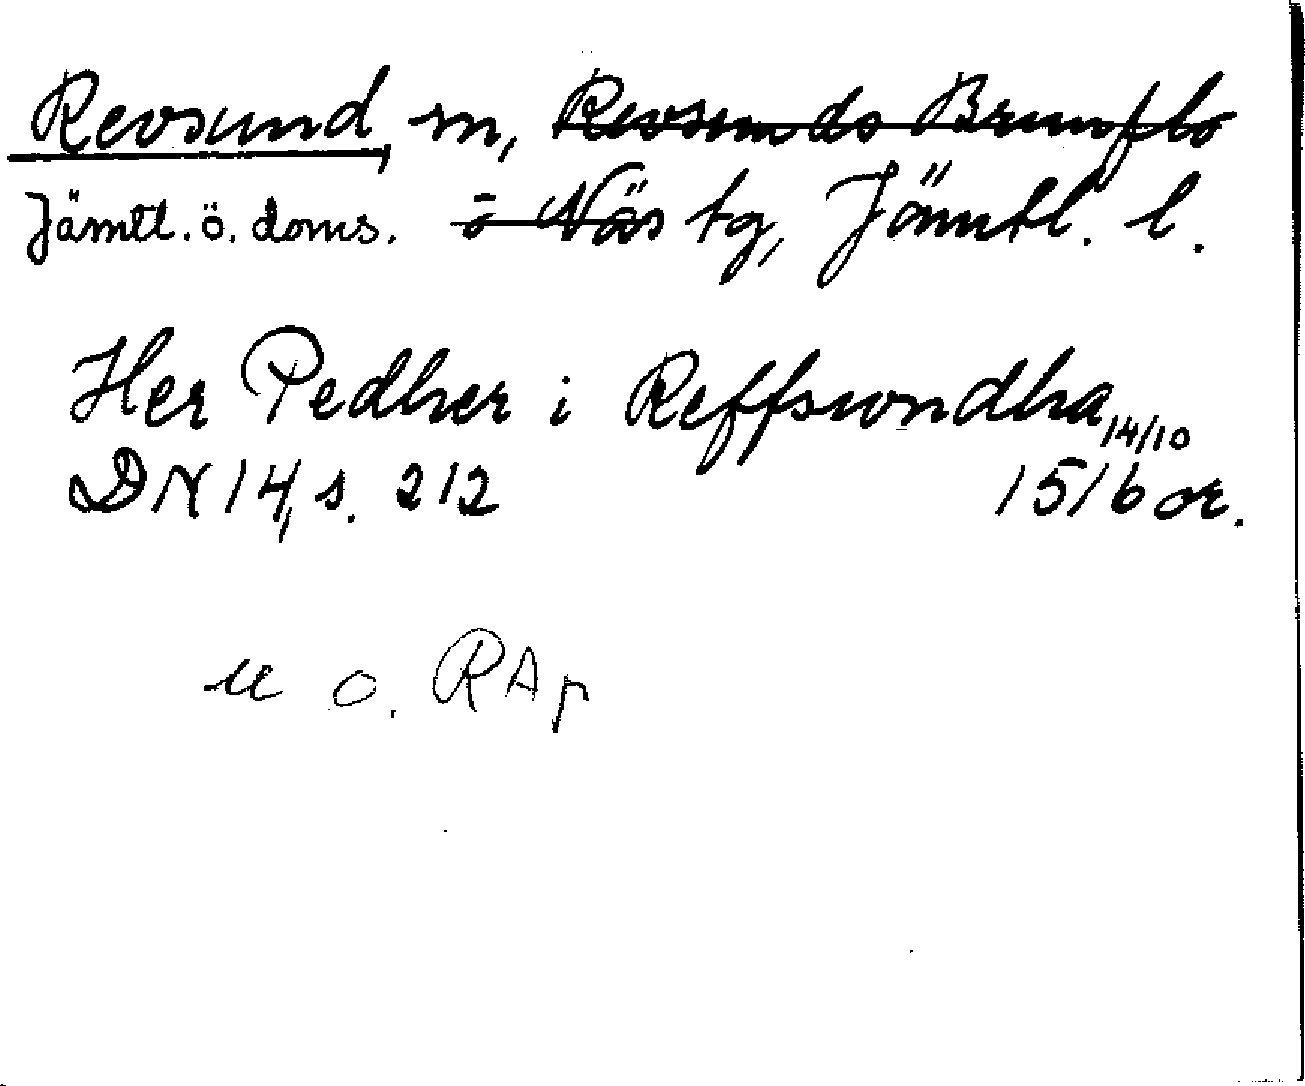 Revsund, sn, Revsunds Brunflo
Jämtl. ö. doms. o Näs tg, Jämtl. l.
Her Pedher i Reffswndha 14/10
DN 14, s. 212 1516 or.
u o. RAp